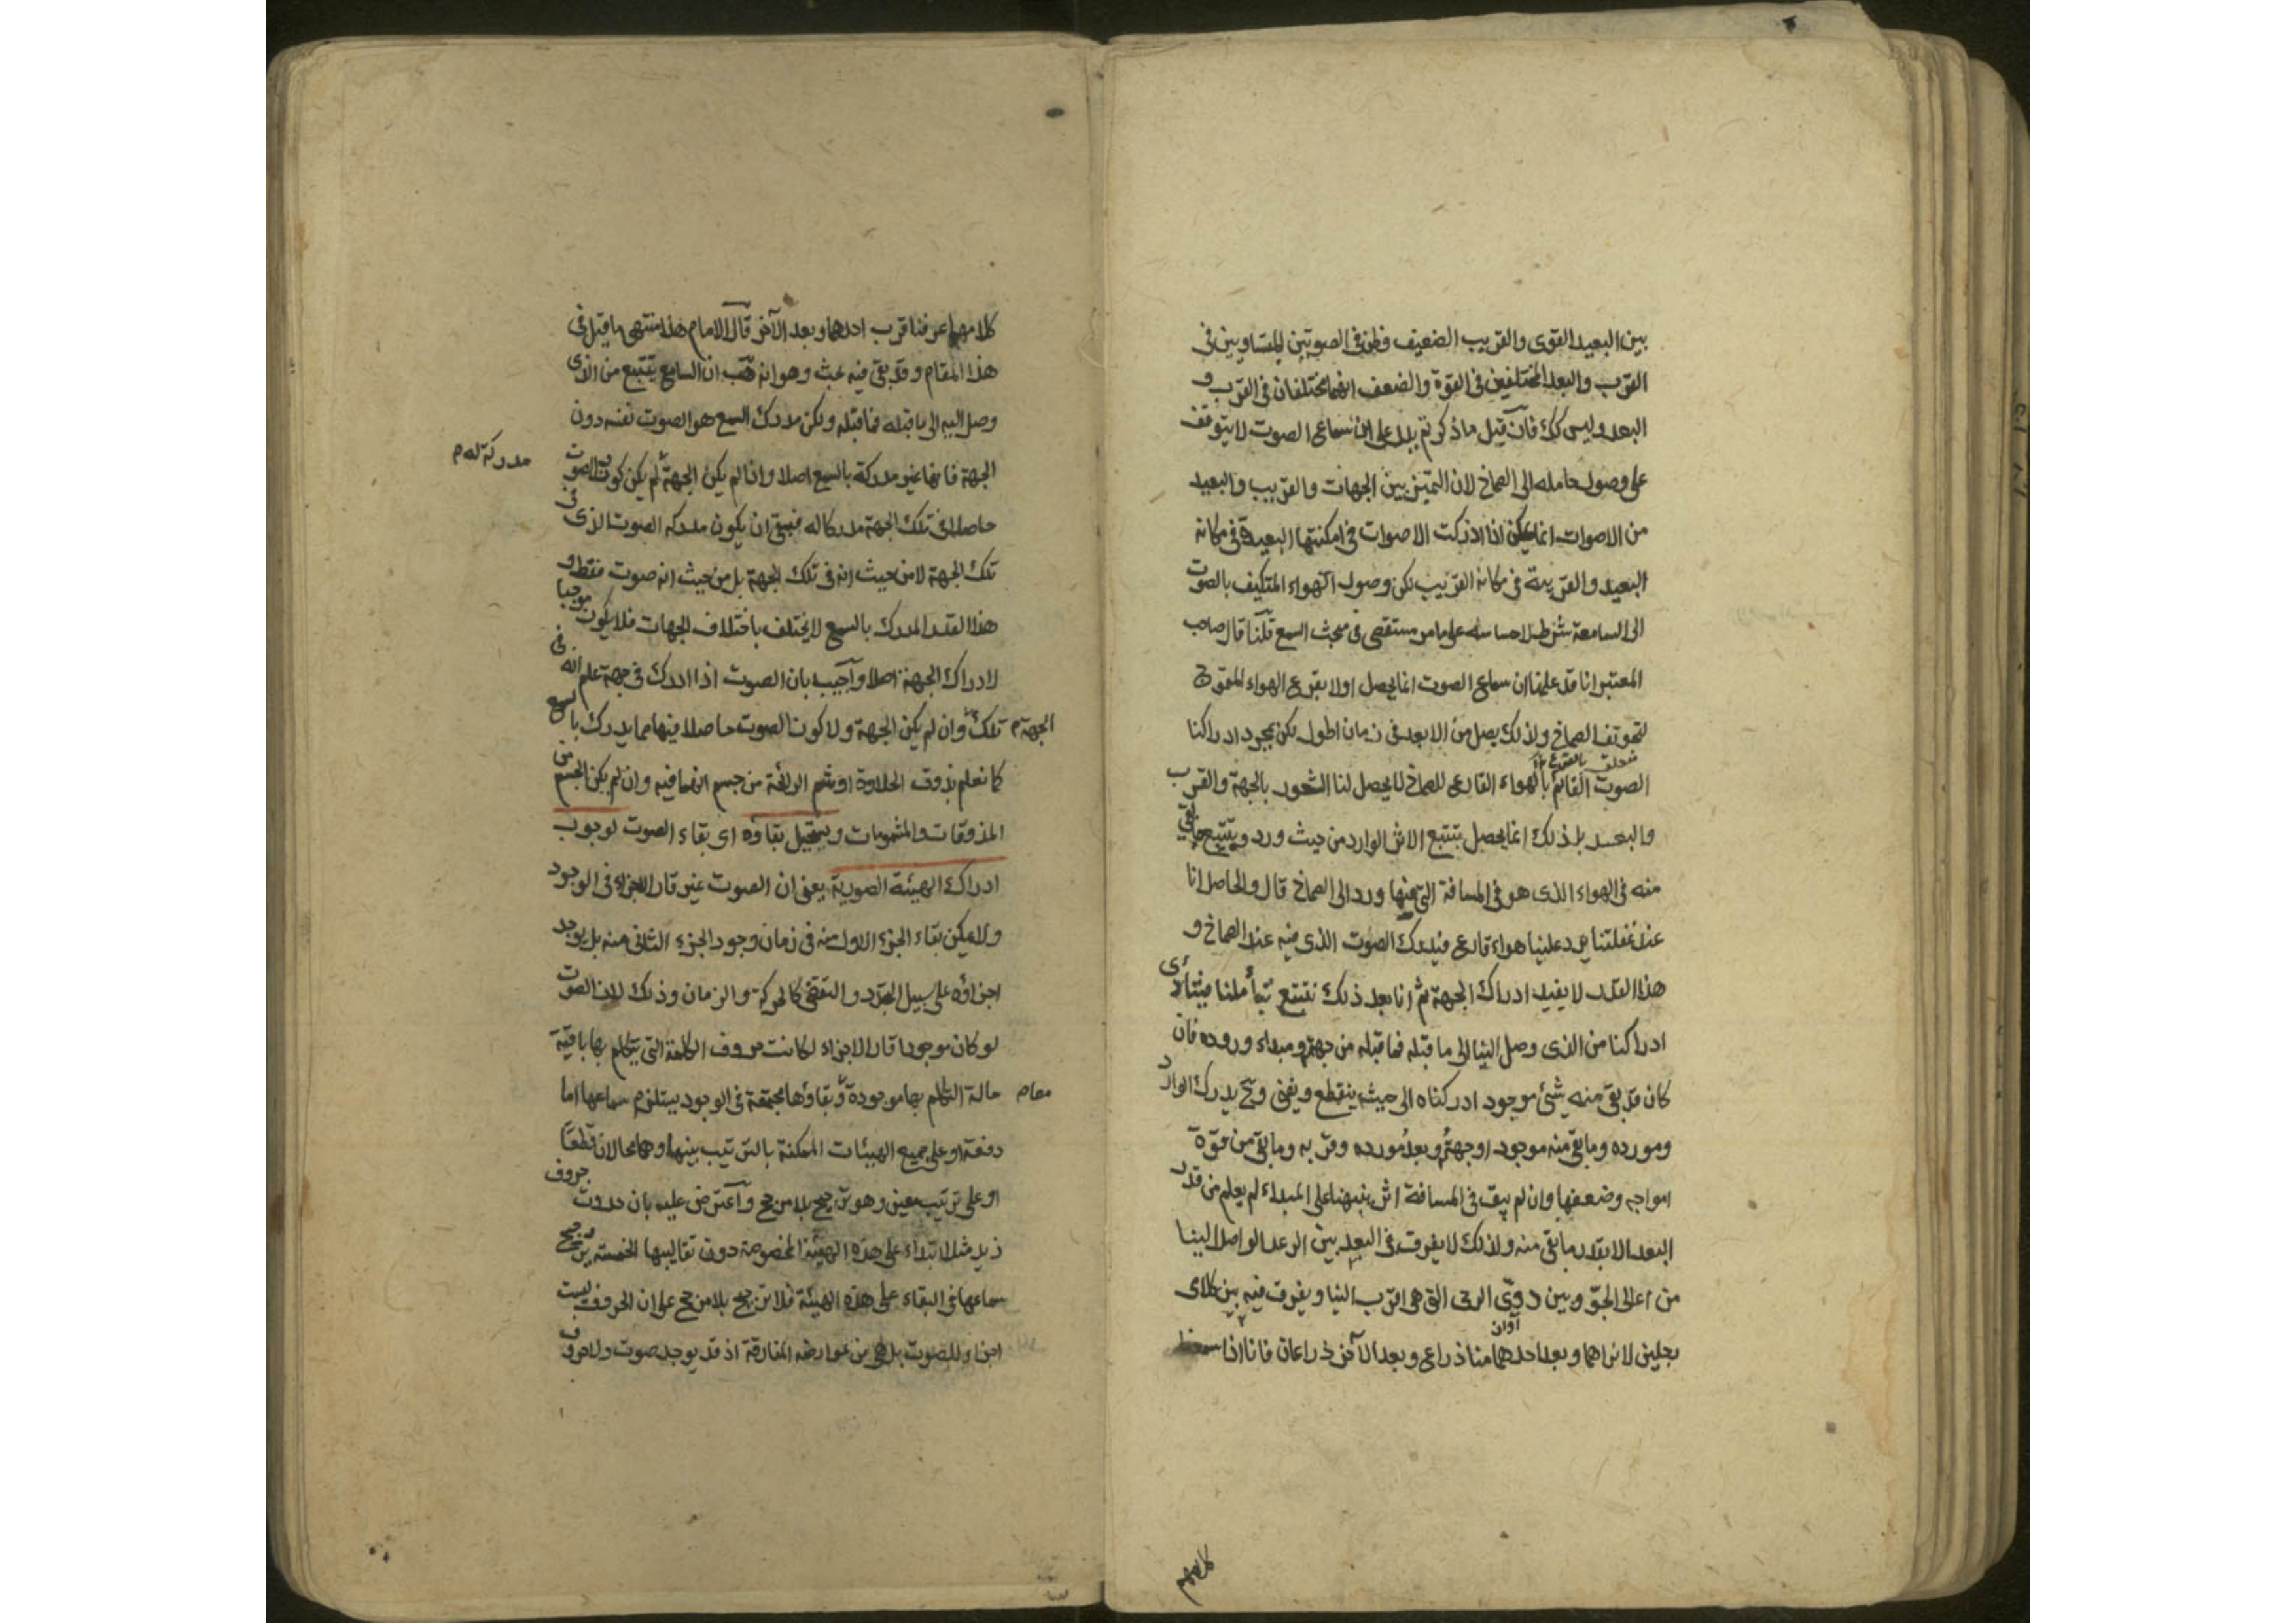 بين البعيد القوى والقريب الضعيف وظن فى الصوتين المتساويين فى
القرب والبعد المختلفين فى القوة والضعف انهما مختلفان فى القرب و
البعد وليس كك فان قيل ما ذكرتم يدل على ان سماع الصوت لا يتوقف
على وصول حامله الى الصماخ لان التميز بين الجهات والقريب والبعيد
من الاصوات انما يمكن اذا ادركت الاصوات فى امكنتها البعيدة فى مكانه
البعيد والقريبة فى مكانه القريب لكن وصول الهواء المتكيف بالصوت
الى السامعة شرط لاحساسه على ما مر مستقصى فى مبحث السمع قلنا قال صاحب
المعتبر انا قد علمنا ان سماع الصوت انما يحصل اولا بقرع الهواء المتموج
لتجويف الصماخ ولذلك يصل من الابعد فى زمان اطول لكن بمجرد ادراكنا
متعلق بالقارع ١٢
الصوت القائم بالهواء القارع للصماخ لا يحصل لنا الشعور بالجهة والقرب
والبعد بل ذلك انما يحصل بتتبع الاثر الوارد من حيث ورد ويتتبع ما بقى
منه فى الهواء الذى هو فى المسافة التى فيها ورد الى الصماخ قال والحاصل انا
عند غفلتنا يرد علينا هواء قارع فيدرك الصوت الذى فيه عند الصماخ و
هذا القدر لا يفيد ادراك الجهة ثم انا بعد ذلك نتتبع بتأملنا فيتأدى
ادراكنا من الذى وصل الينا الى ما قبله فما قبله من جهته ومبداء وروده فان
كان قد بقى منه شئ موجود ادركناه الى حيث ينقطع ويفنى وح يدرك الوارد
ومورده وما بقى منه موجودا وجهته وبعد مورده وقربه وما بقى من قوة
امواجه وضعفها وان لم يبق فى المسافة اثر ينبهنا على المبداء لم يعلم من قدر
البعد الا بقدر ما بقى منه ولذلك لا يفرق فى البعد بين الرعد الواصل الينا
من اعالى الجو وبين دوى الرحى التى هى اقرب الينا ويفرق فيه بين كلامى
رجلين لا نراهما وبعد احدهما منا ذراع وبعد الآخر ذراعان فانا اذا سمعنا
كلامهما
كلامهما عرفنا قرب احدهما وبعد الآخر قال الامام هذا منتهى ما قيل فى
هذا المقام وقد بقى فيه بحث وهو انه هب ان السامع يتتبع من الذى
وصل اليه الى ما قبله فما قبله ولكن مدرك السمع هو الصوت نفسه دون
الجهة فانها غير مدركة بالسمع اصلا واذا لم يكن الجهة لم يكن كون الصوت
مدركة له م
حاصلا فى تلك الجهة مدركا له فبقى ان يكون مدركه الصوت الذى فى
تلك الجهة لا من حيث انه فى تلك الجهة بل من حيث انه صوت فقط و
هذا القدر المدرك بالسمع لا يختلف باختلاف الجهات فلا يكون موجبا
لادراك الجهة اصلا واجيب بان الصوت اذا ادرك فى جهة علم انه فى
تلك وان لم يكن الجهة ولا كون الصوت حاصلا فيها مما يدرك بالسمع
الجهة م
كما نعلم بذوق الحلاوة او بشم الرائحة من جسم انهما فيه وان لم يكن الجسم من
المذوقات والمشمومات ويستحيل بقاؤه اى بقاء الصوت لوجوب
ادراك الهيئة الصورية يعنى ان الصوت غير قار الاجزاء فى الوجود
ولا يمكن بقاء الجزء الاول منه فى زمان وجود الجزء الثانى منه بل يوجد
اجزاؤه على سبيل التجدد والتقضى كالحركة والزمان وذلك لان الصوت
لو كان موجودا قار الاجزاء لكانت حروف الكلمة التى يتكلم بها باقية
حالة التكلم بها موجودة وبقاؤها مجتمعة فى الوجود يستلزم سماعها اما
معا م
دفعة او على جميع الهيئات الممكنة بالترتيب بينها وهما محالان قطعا
او على ترتيب معين وهو ترجيح بلا مرجح واعترض عليه بان حدوث حروف
زيد مثلا ابتداء على هذه الهيئة المخصوصة دون تقاليبها الخمسة يرجح
سماعها فى البقاء على هذه الهيئة فلا ترجيح بلا مرجح على ان الحروف ليست
اجزاء للصوت بل هى من عوارضه المفارقة اذ قد يوجد صوت ولا حروف